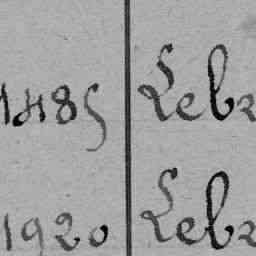 1485 Lebr
1920 Lebr